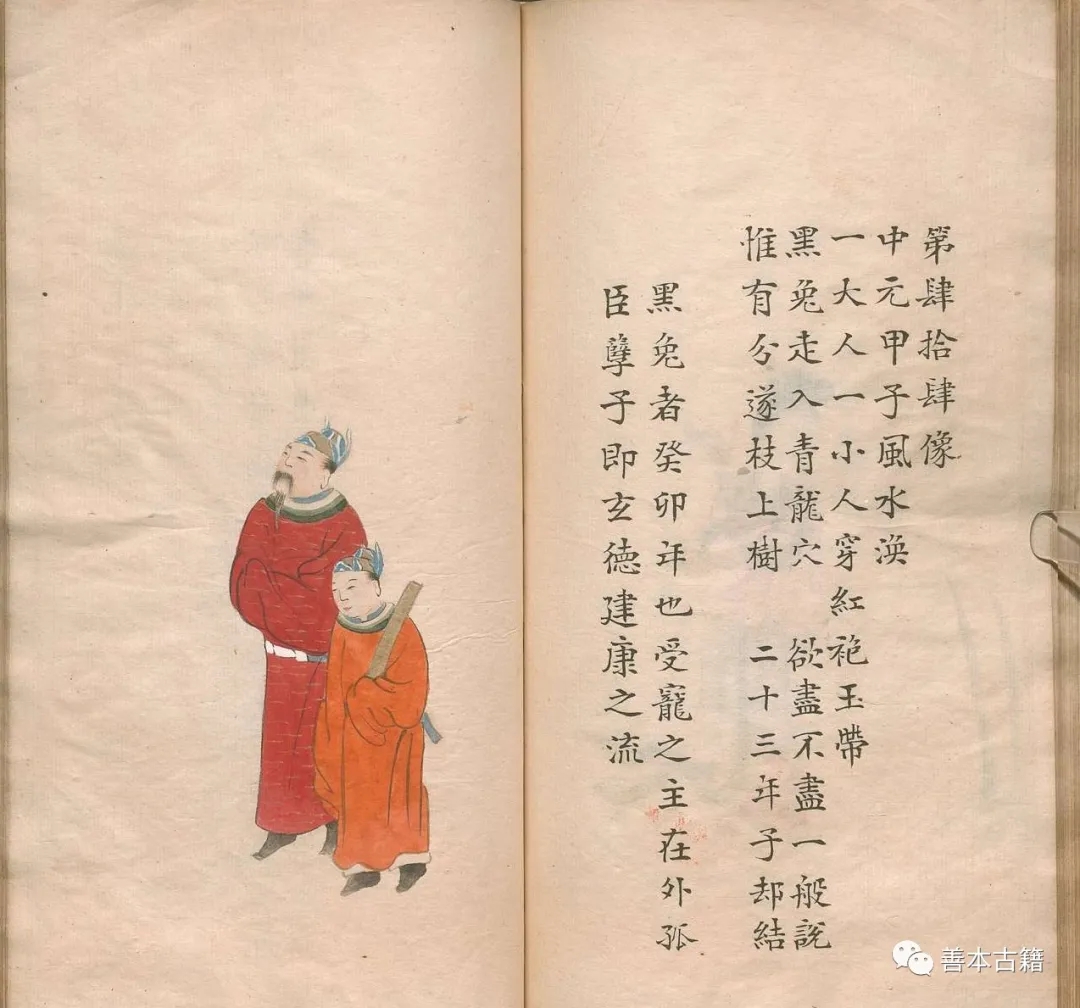 第肆拾肆像
中元甲子風水渙
一大人一小人穿紅袍玉帶
黑兔走入青龍穴 欲盡不盡一般說
惟有分遂枝上樹 二十三年子却結
黑兔者癸卯年也受寵之主在外孤
臣孽子即玄德建康之流
善本古籍